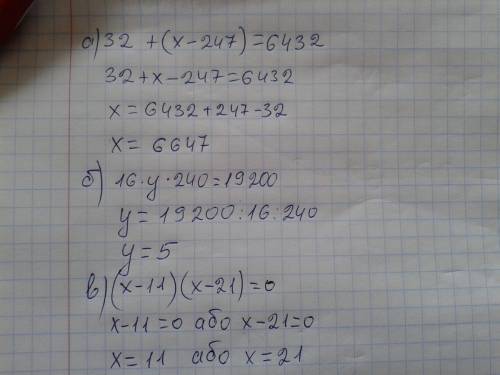 а) 32 + (x-247) = 6432
32 + x - 247 = 6432
x = 6432 + 247 - 32
x = 6647
б) 16 · y · 240 = 19200
y = 19200 : 16 : 240
y = 5
в) (x-11) (x-21) = 0
x-11 = 0 або x-21 = 0
x = 11 або x = 21